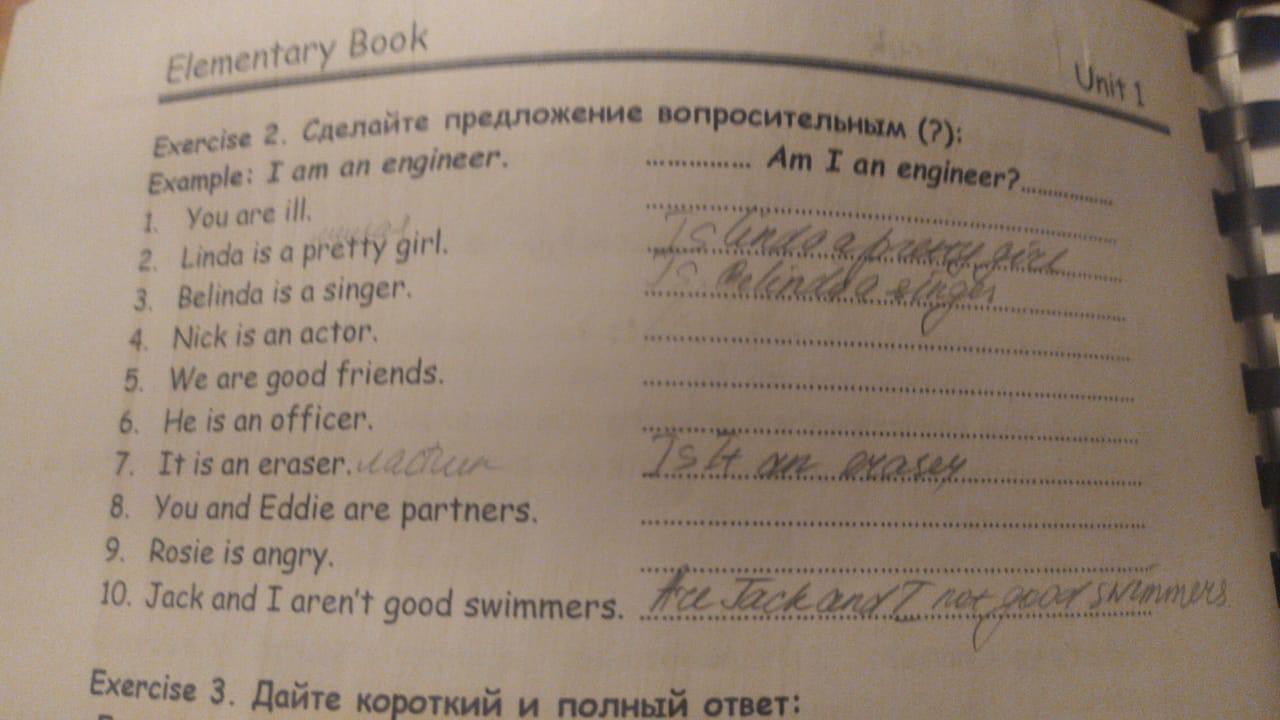 Elementary Book
Unit 1
Exercise 2. Сделайте предложение вопросительным (?):
Example: I am an engineer. ............... Am I an engineer?...............
1. You are ill.
2. Linda is a pretty girl. Is linda a pretty girl
3. Belinda is a singer. Is Belinda a singer
4. Nick is an actor.
5. We are good friends.
6. He is an officer.
7. It is an eraser. Is It an eraser
8. You and Eddie are partners.
9. Rosie is angry.
10. Jack and I aren't good swimmers. Are Jack and I not good swimmers
Exercise 3. Дайте короткий и полный ответ: